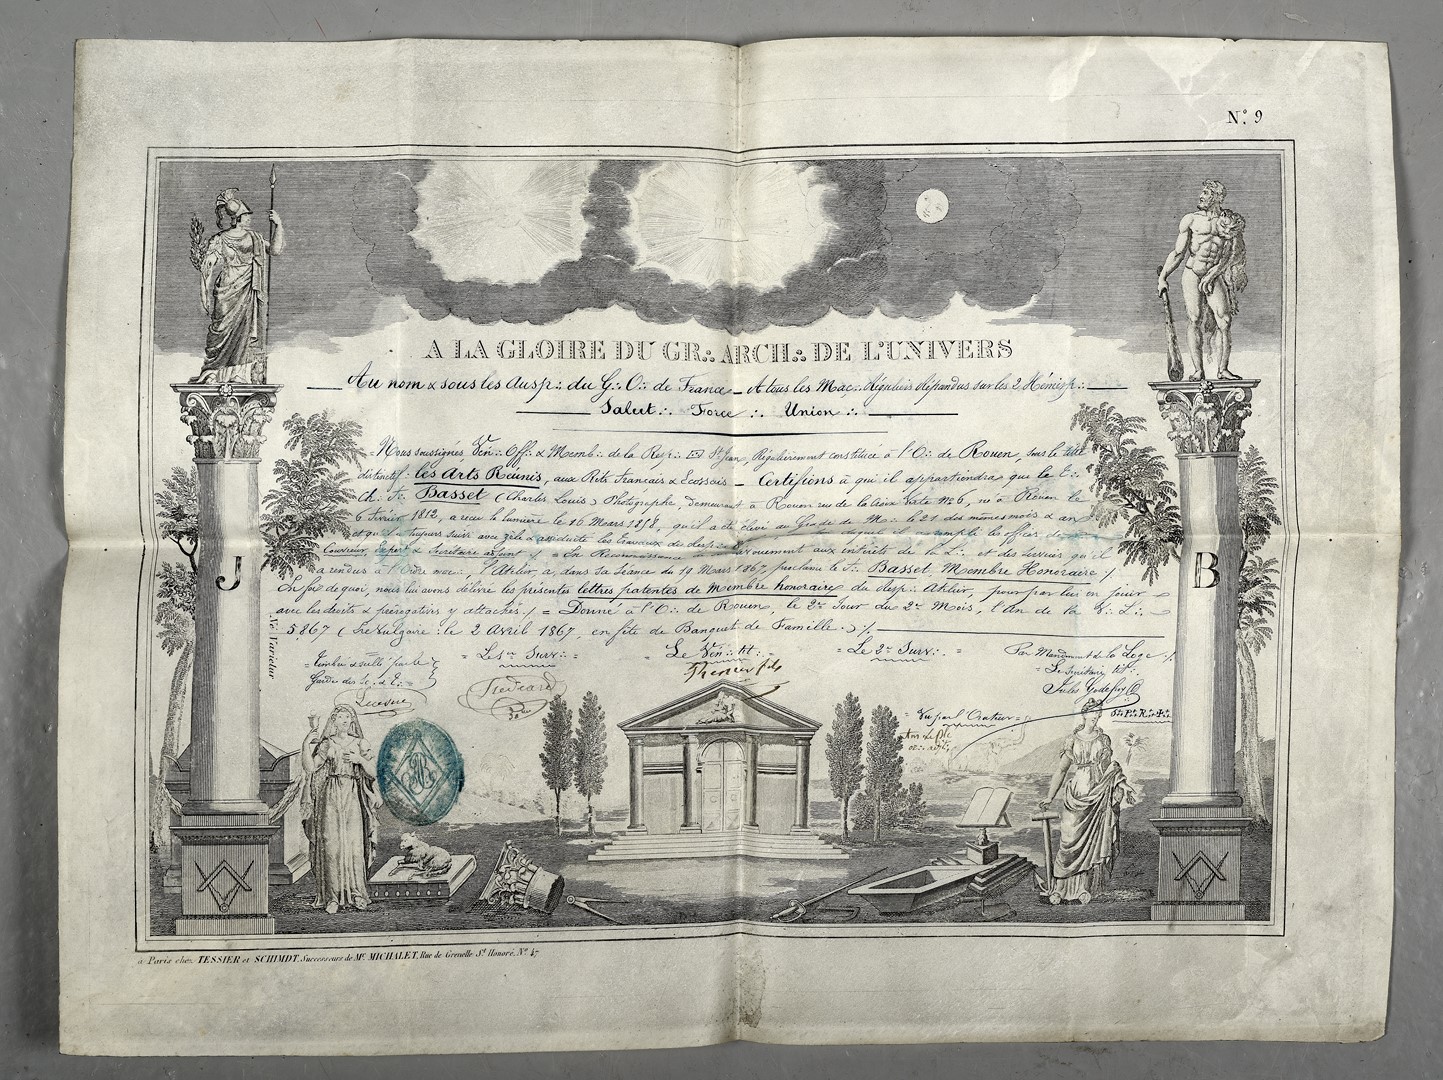 Nº. 9
A LA GLOIRE DU GR∴ ARCH∴ DE L'UNIVERS
Au nom & sous les Ausp∴ du G∴ O∴ de France _ A tous les Maç∴ Réguliers répandus sur les 2 Hémisp∴
Salut ∴ Force ∴ Union ∴
= Nous soussignés Vén∴ Off∴ & Memb∴ de la Resp∴ St Jean, Régulièrement constituée à l'O∴ de Rouen, sous le titre
distinctif: les Arts Réunis, aux Rits Français & Ecossais _ Certifions à qui il appartiendra que le T∴
Ch∴ F∴ Basset (Charles Louis) Photographe, demeurant à Rouen rue de la Croix Verte Nº 6, né à Rouen le
6 février 1812, a reçu la lumière le 16 Mars 1858, qu'il a été élevé au Grade de Me∴ le 21 des mêmes mois & an
et qu'il a toujours suivi avec zèle & assiduité les travaux du Resp∴ duquel il a rempli les offices de
Couvreur, Expert & Secrétaire adjoint ./. = En Reconnaissance dévouement aux intérêts de la L∴ et des services qu'il
a rendus à l'Ordre maç∴, l'Atelier, a, dans sa Séance du 19 Mars 1867, proclamé le F∴ Basset, Membre Honoraire ./.
En foi de quoi, nous lui avons délivré les présentes lettres patentes de Membre honoraire du Resp∴ Atelier, pour par lui en jouir
avec les droits & prérogatives y attachés ./. = Donné à l'O∴ de Rouen, le 2me Jour du 2me Mois, l'An de la V∴ L∴
5867 (Ere Vulgaire: le 2 Avril 1867, en fête de Banquet de Famille.) ./.
= Timbré & scellé par le
Garde des Sc. & T∴ =
= Le 1er Surv∴ =
= Le Vén∴ tit∴ =
= Le 2me Surv∴ =
Par Mandement de la Loge ./.
= Le Secrétaire titre
Jules Godefroy
= Vu par l'Orateur =
Né Varietur
J
B
à Paris chez TESSIER et SCHIMDT, Successeurs de Mr. MICHALET, Rue de Grenelle St. Honoré, Nº. 47